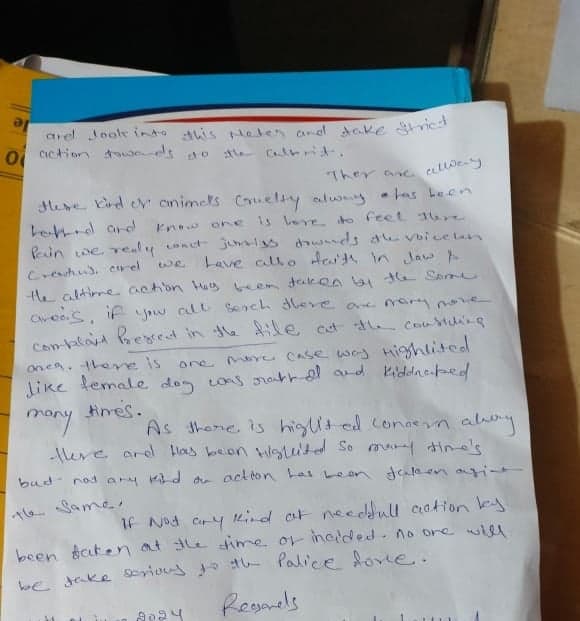 and look into this Mater and take strict
action towards to the culbrit.
Ther are allway
these kind of animals Cruelty alway has been
and know one is here to feel there
Pain we realy want jurriss towards the voiceless
Creatius. and we have also faith in law &
the altime action Hus been taken by the Some
areas, if you all serch there are many more
complaint Present in the file at the
area. there is one more case was Highlited
like female dog was and Kiddnabed
many times.
As there is higlited concern alway
there and Has been so many time's
but not any kind on action has been taken agint
the Same.
If Not any kind of needfull action by
been taken at the time or incided. no one will
be take serious to the Police force.
2024 Regards